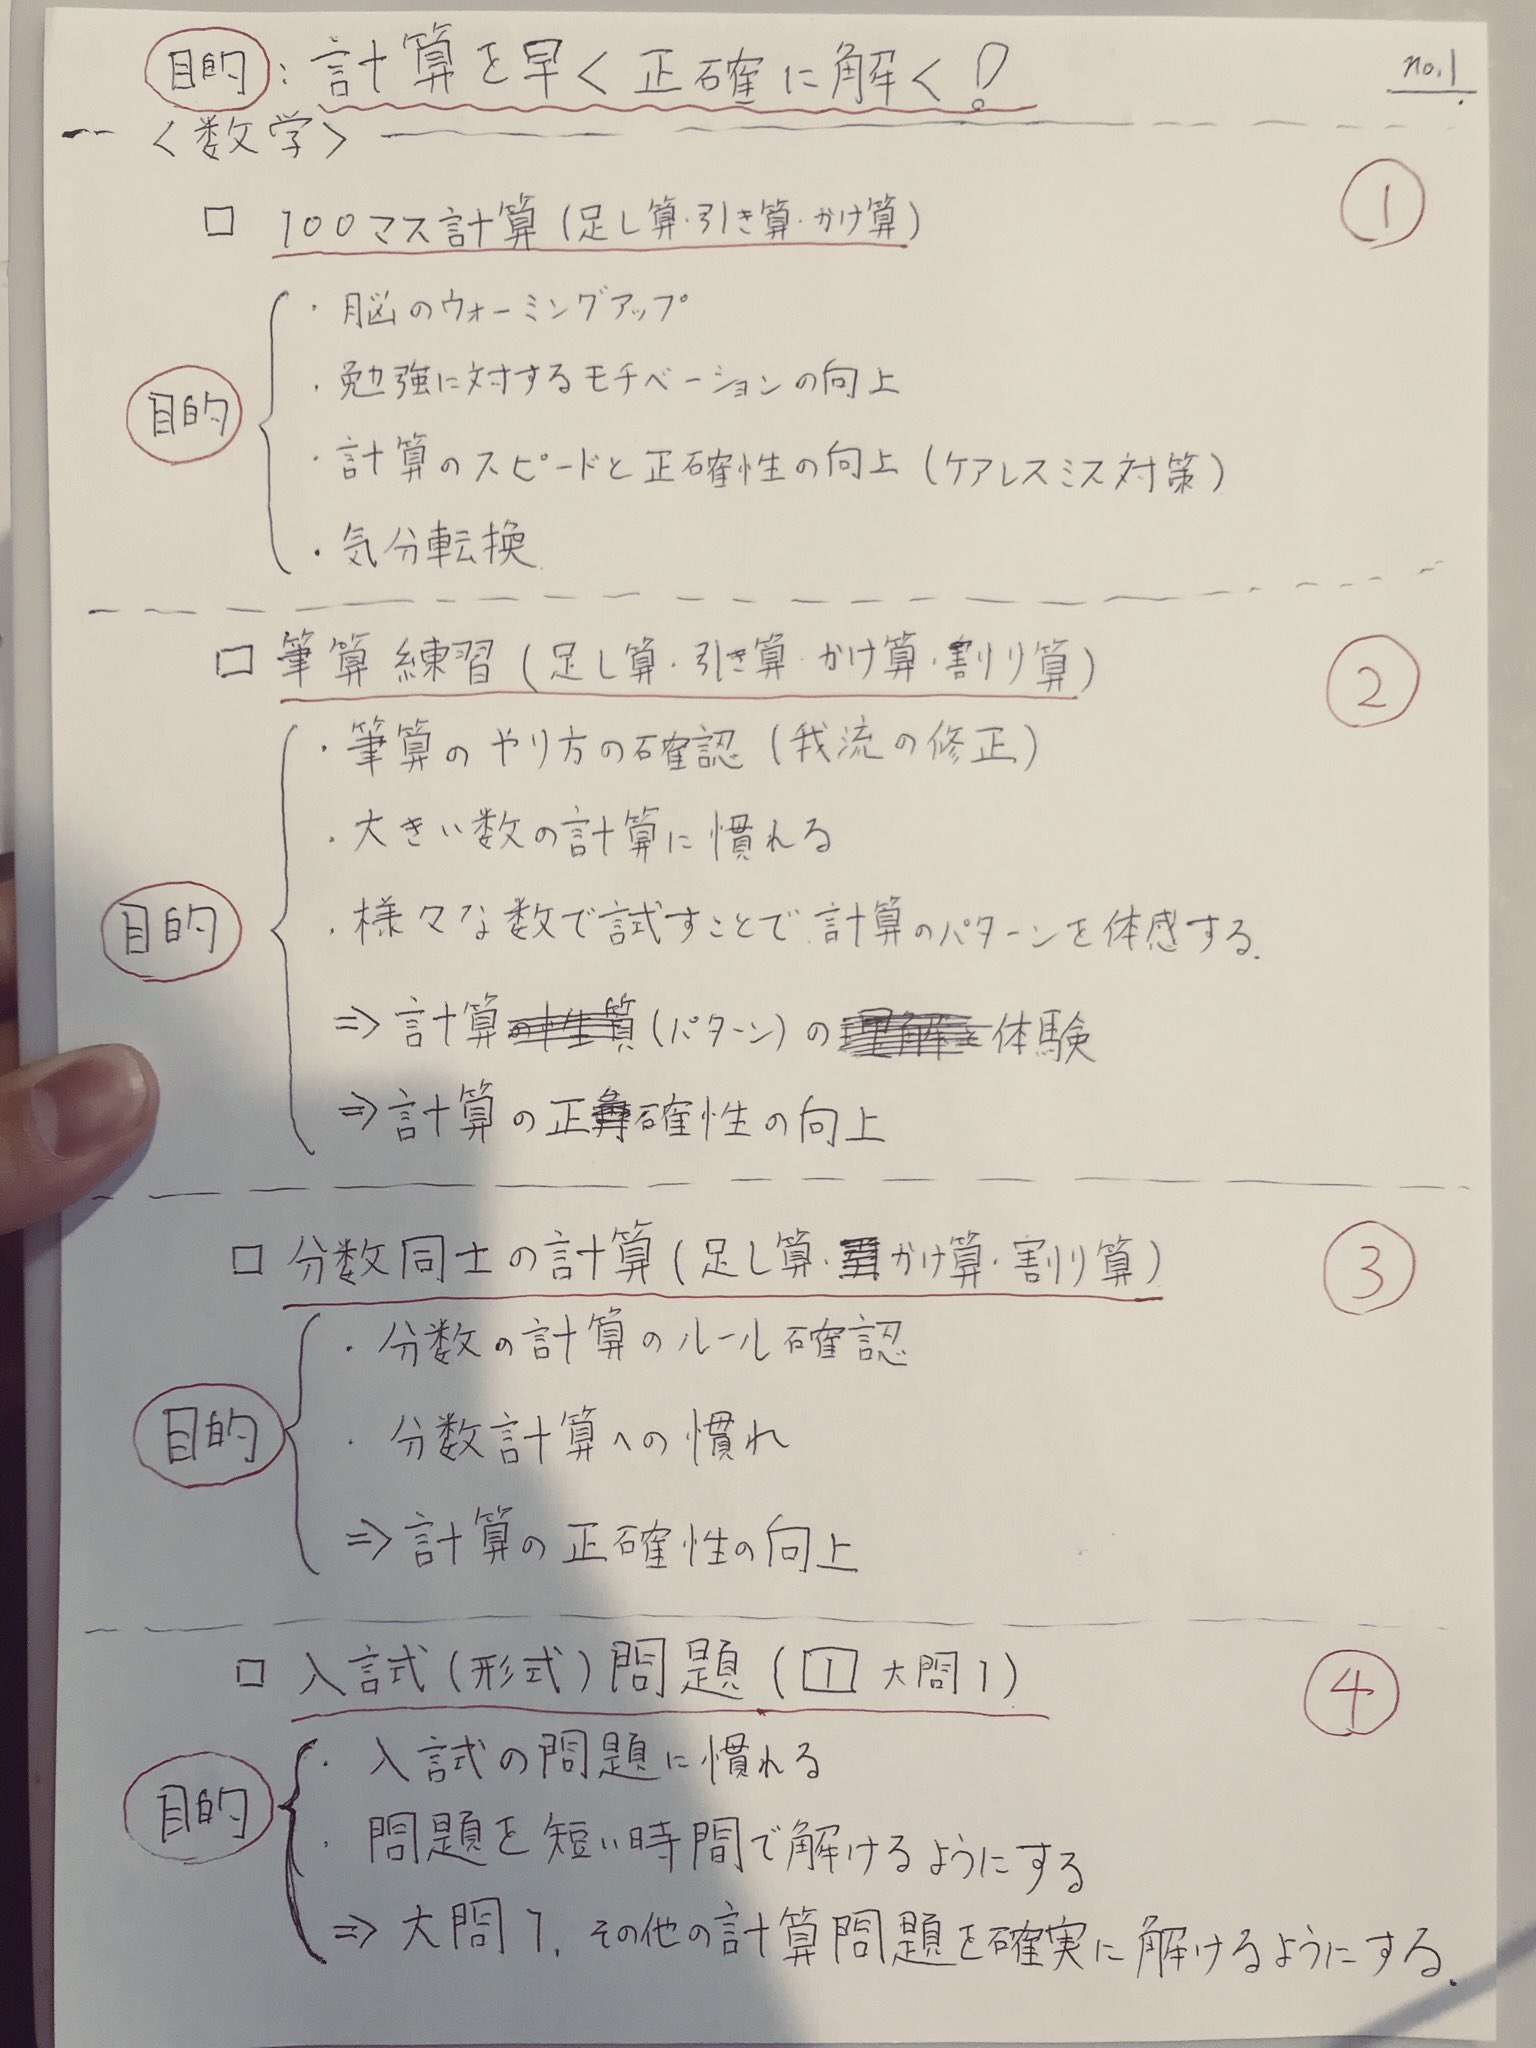 目的:計算を早く正確に解く! no.1
<数学>
□ 100マス計算(足し算・引き算・かけ算) ①
・脳のウォーミングアップ
・勉強に対するモチベーションの向上
目的
・計算のスピードと正確性の向上(ケアレスミス対策)
・気分転換
□ 筆算練習(足し算・引き算・かけ算・割り算) ②
・筆算のやり方の確認(我流の修正)
・大きい数の計算に慣れる
目的
・様々な数で試すことで計算のパターンを体感する.
⇒計算(パターン)の体験
⇒計算の正確性の向上
□ 分数同士の計算(足し算・かけ算・割り算) ③
・分数の計算のルール確認
目的
・分数計算への慣れ
⇒計算の正確性の向上
□ 入試(形式)問題(1 大問1) ④
・入試の問題に慣れる
目的
・問題を短い時間で解けるようにする
⇒大問1.その他の計算問題を確実に解けるようにする.